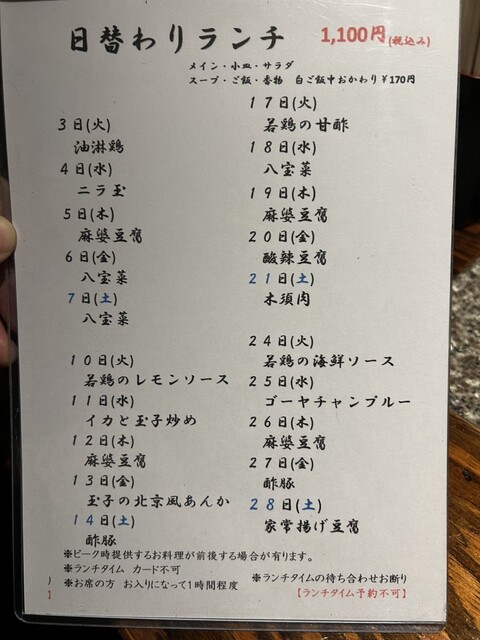 日替わりランチ 1,100円(税込み)
メイン・小皿・サラダ
スープ・ご飯・香物 白ご飯中おかわり¥170円
3日(火)
油淋鶏
4日(水)
ニラ玉
5日(木)
麻婆豆腐
6日(金)
八宝菜
7日(土)
八宝菜
10日(火)
若鶏のレモンソース
11日(水)
イカと玉子炒め
12日(木)
麻婆豆腐
13日(金)
玉子の北京風あんか
14日(土)
酢豚
17日(火)
若鶏の甘酢
18日(水)
八宝菜
19日(木)
麻婆豆腐
20日(金)
酸辣豆腐
21日(土)
木須肉
24日(火)
若鶏の海鮮ソース
25日(水)
ゴーヤチャンプルー
26日(木)
麻婆豆腐
27日(金)
酢豚
28日(土)
家常揚げ豆腐
※ピーク時提供するお料理が前後する場合が有ります。
※ランチタイム カード不可
※お席の方 お入りになって1時間程度
※ランチタイムの待ち合わせお断り
【ランチタイム予約不可】